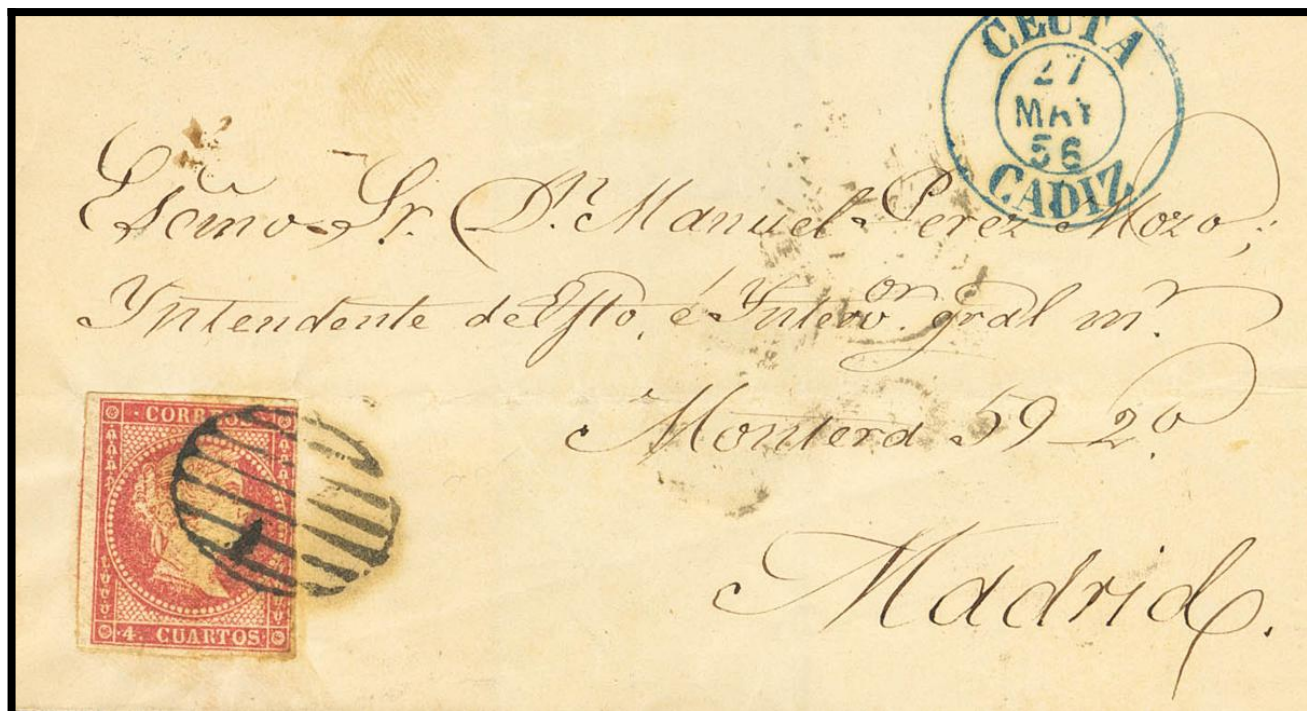 CEUTA
27
MAY
56
CADIZ
Escmo Sr. Dn. Manuel Perez Mozo;
Yntendente de Efto. é Ynterv.or gral mr.
Montera 59 2o
CORREOS
4. CUARTOS
Madrid.